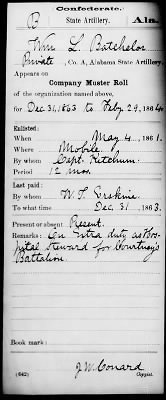 Confederate.
B State Artillery. Ala.
Wm L. Batchelor
Private, Co. A, Alabama State Artillery.
Appears on
Company Muster Roll
of the organization named above,
for Dec 31, 1863 to Feby 29, 1864.
Enlisted:
When May 4, 1861.
Where Mobile
By whom Capt. Ketchum
Period 12 mos.
Last paid:
By whom W. T. Erskine
To what time Dec. 31, 1863.
Present or absent Present.
Remarks: On Extra duty as Hos-
pital Steward for Courtney's
Battalion.
Book mark:
J. W. Conard
(642) Copyist.